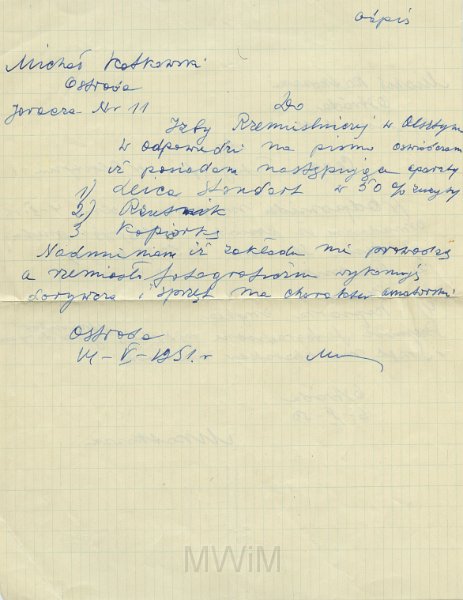 odpis
Michał Kotkowski
Ostróda
Jaracza Nr 11
Do
Izby Rzemieślniczej w Olsztynie
w odpowiedzi na pismo oświadczam
iż posiadam następujące aparaty
1) Leica Standart w 50 %
2.) Rzutnik
3. Kopiorka
Nadmieniam iż zakładu nie prowadzę
a rzemiosło fotograficzne wykonuję
dorywczo i sprzęt ma charakter amatorski
Ostróda
V-1951. r
MWiM